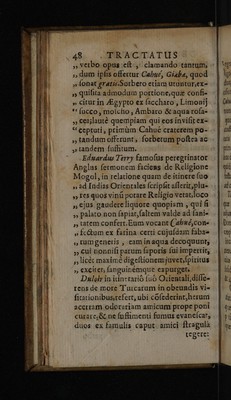 48 TRACTATUS
„ verbo opus est, clamando tantum,
„ dum ipsis offertur Cahué, Giaba, quod
„ sonat gratis. Sorbero etiam utuntur, ex-
„ quisita admodum portione, quæ confi-
„ citur in Ægypto ex saccharo, Limonij
„ succo, moscho, Ambaro & aqua rosa-
„ cea, lautè quempiam qui eos invisit ex-
„ cepturi, primùm Cahué craterem po-
„ tandum offerunt, sorberum postea ac
„ tandem suffitum.
Eduardus Terry famosus peregrinator
Anglus sermonem faciens de Religione
Mogol, in relatione quam de itinere suo
„ ad Indias Orientales scripsit asserit, plu-
„ res quos vinū potare Religio vetat, loco
„ ejus gaudere liquore quopiam, qui si
„ palato non sapiat, saltem valde ad sani-
„ tatem confert. Eum vocant Cahué, con-
„ fectum ex farina certi cujusdam faba-
„ rum generis, eam in aqua decoquunt,
„ cui nonnisi parum saporis sui impertit,
„ licet maximè digestionem juvet, spiritus
„ excitet, sanguinemque expurget.
Duloir in itinerario suo Orientali, disse-
rens de more Turcarum in obeundis vi-
sitationibus, refert, ubi cōsederint, harum
accetram odoratiam amicum prope poni
curare, & ne suffimenti fumus evanescat,
duos ex famulis caput amici stragula
tegere: